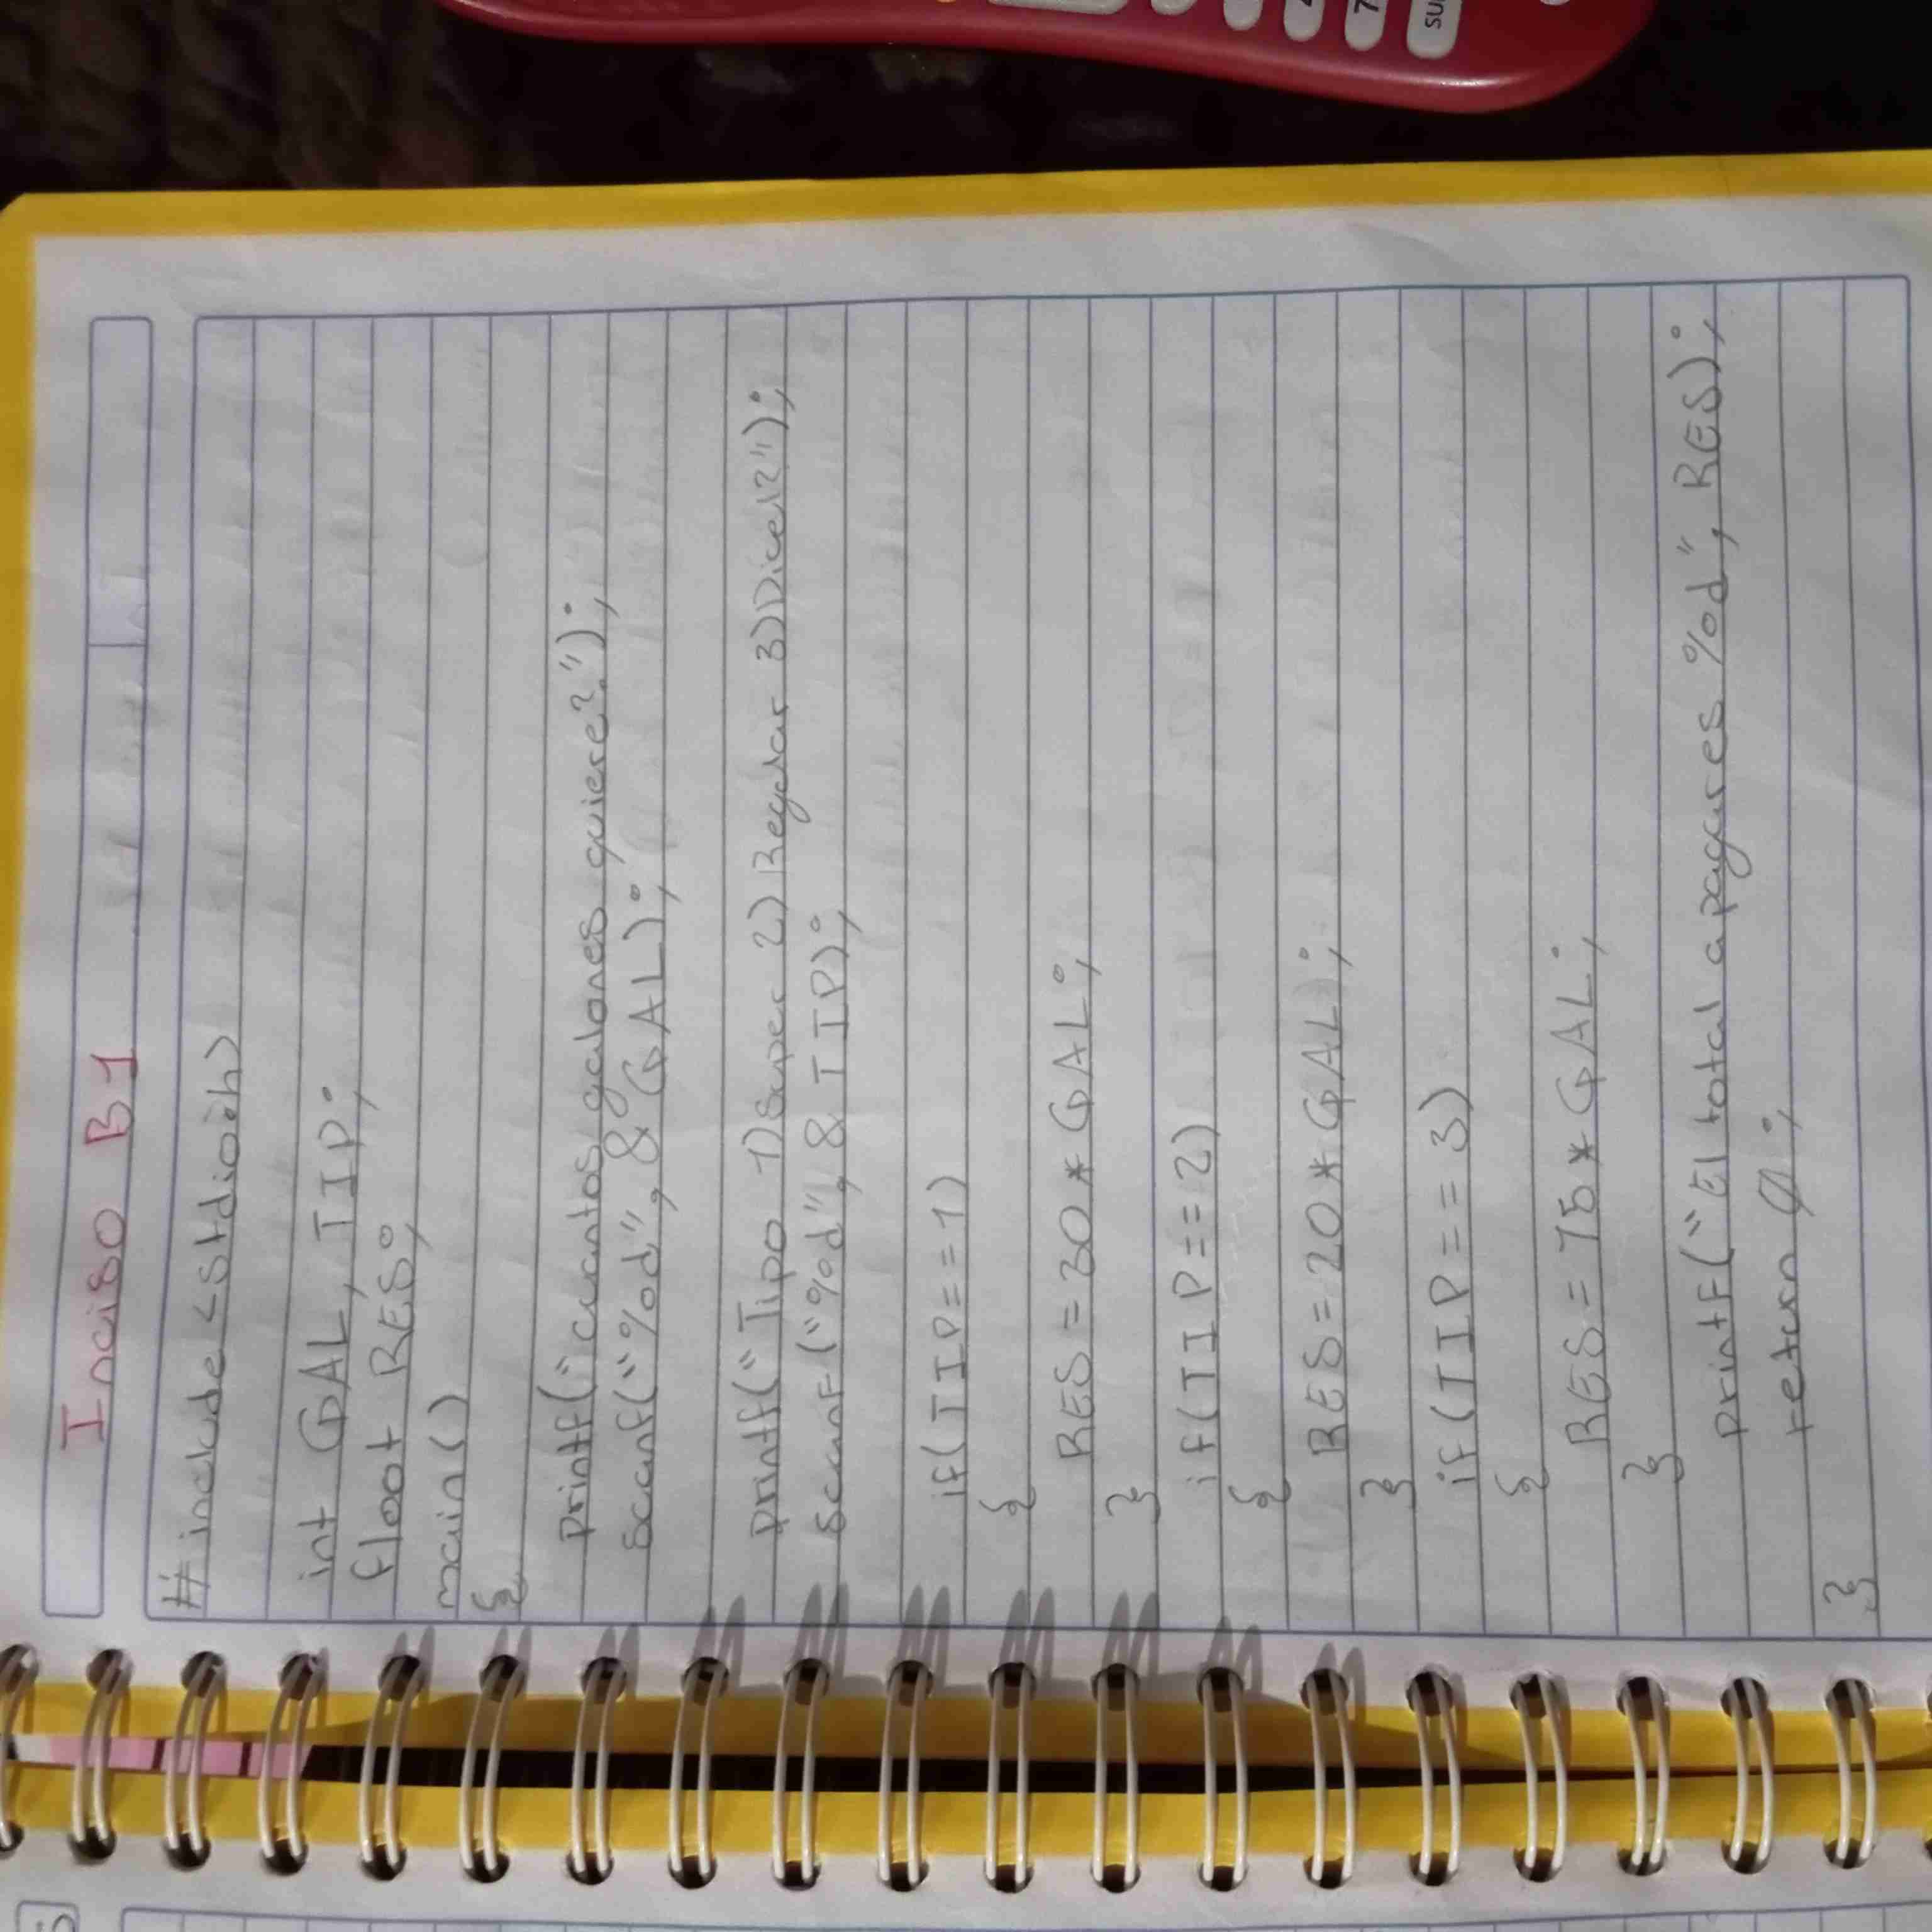 Inciso B1
# include <stdio.h>
int GAL, TIP;
float RES;
main()
{
printf("cuantos galones quiere?");
scanf("%d", & GAL);
printf("Tipo 1)Super 2)Regular 3)Dicel2");
scanf("%d", & TIP);
if(TIP==1)
{
RES=30*GAL;
}
if(TIP==2)
{
RES=20*GAL;
}
if(TIP==3)
{
RES=15*GAL;
}
printf("El total a pagares %d", RES);
return 0;
}
7